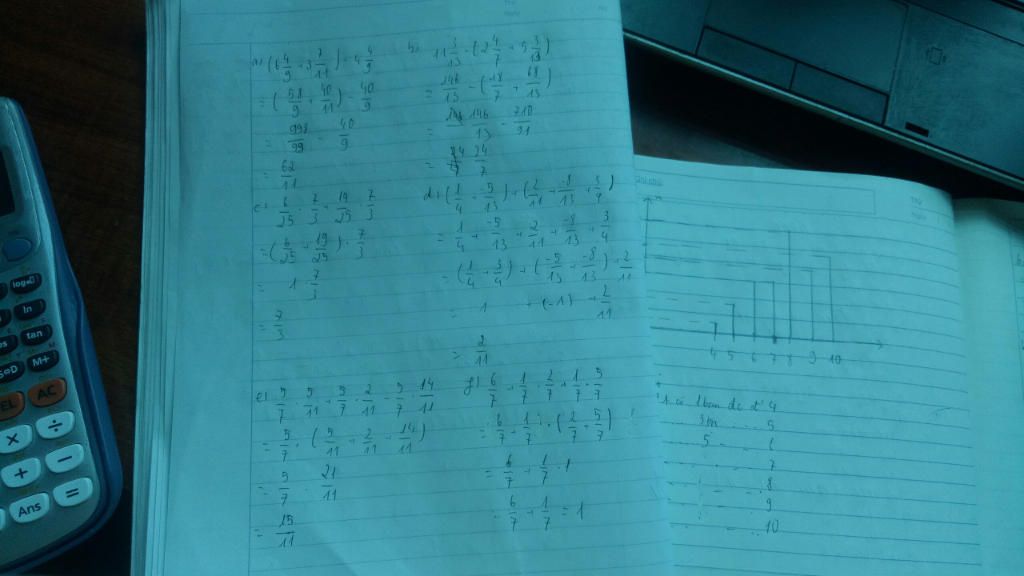 a) (6 4/9 + 3 7/11) - 4 4/9
= (58/9 + 40/11) - 40/9
= 998/99 - 40/9
= 62/11
b) 11 3/13 - (2 4/7 + 5 3/13)
= 146/13 - (18/7 + 68/13)
= 146/13 - 710/91
= 24/7
c) 6/25 . 7/3 + 19/25 . 7/3
= (6/25 + 19/25) . 7/3
= 1 . 7/3
= 7/3
d) (1/4 + -5/13) + (2/11 + -8/13 + 3/4)
= 1/4 + -5/13 + 2/11 + -8/13 + 3/4
= (1/4 + 3/4) + (-5/13 + -8/13) + 2/11
= 1 + (-1) + 2/11
= 2/11
e) 5/7 . 5/11 + 5/7 . 2/11 - 5/7 . 14/11
= 5/7 . (5/11 + 2/11 - 14/11)
= 5/7 . 21/11
= 15/11
g) 6/7 + 1/7 . 2/7 + 1/7 . 5/7
= 6/7 + 1/7 . (2/7 + 5/7)
= 6/7 + 1/7 . 1
= 6/7 + 1/7 = 1
4 5 6 7 8 9 10
1 bạn đc đ' 4
5
5 6
7
8
9
10
log
ln
tan
M+
AC
× ÷
+ −
Ans =